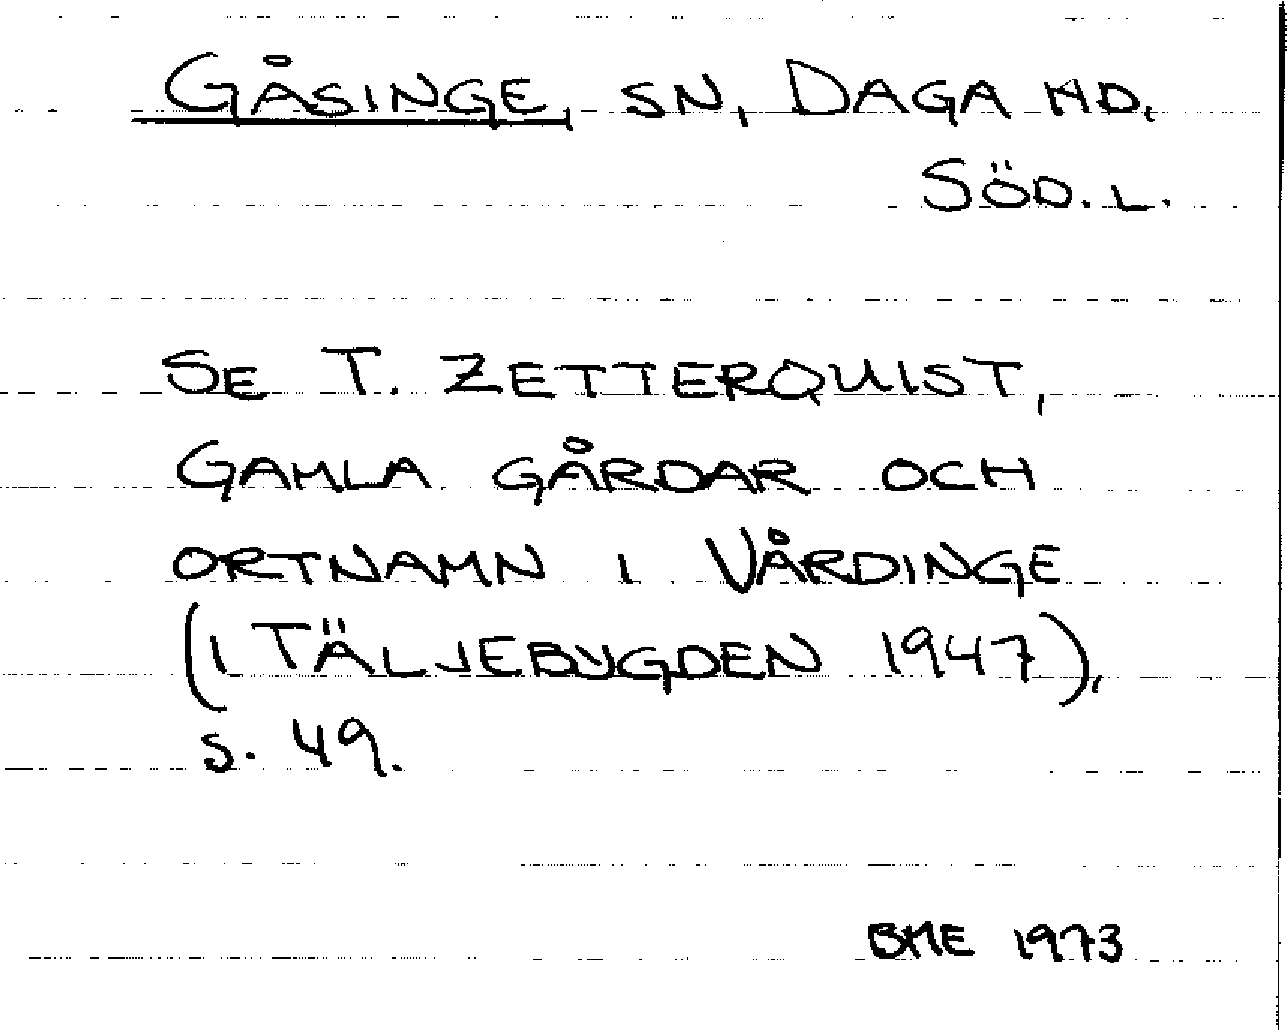 GÅSINGE, SN, DAGA HD,
SÖD. L.
SE T. ZETTERQUIST,
GAMLA GÅRDAR OCH
ORTNAMN I VÅRDINGE
(I TÄLJEBYGDEN 1947),
S. 49.
BME 1973